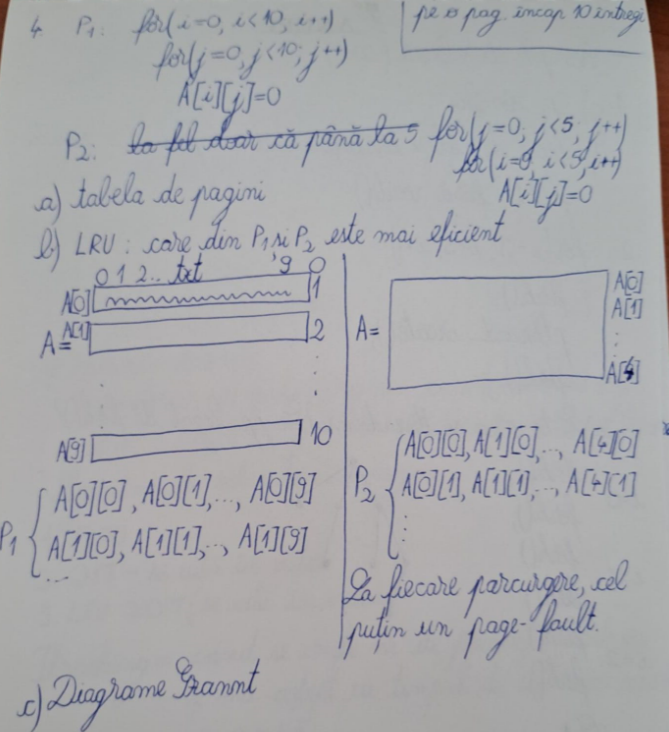 4. P1: for(i=0, i<10, i++)
pe o pag. încap 10 întregi
for(j=0, j<10; j++)
A[i][j]=0
P2: la fel doar că până la 5 for(j=0; j<5; j++)
for(i=0, i<5, i++)
A[i][j]=0
a) tabela de pagini
b) LRU: care din P1 și P2 este mai eficient
0 1 2... txt 9 0
A[0] 1
A= A[1] 2
⋮
A[9] 10
P1 { A[0][0], A[0][1],..., A[0][9]
A[1][0], A[1][1],.., A[1][9]
...
A=
A[0]
A[1]
⋮
A[4]
P2 { A[0][0], A[1][0],..., A[4][0]
A[0][1], A[1][1],..., A[4][1]
⋮
La fiecare parcurgere, cel
puțin un page-fault.
c) Diagrame Grannt